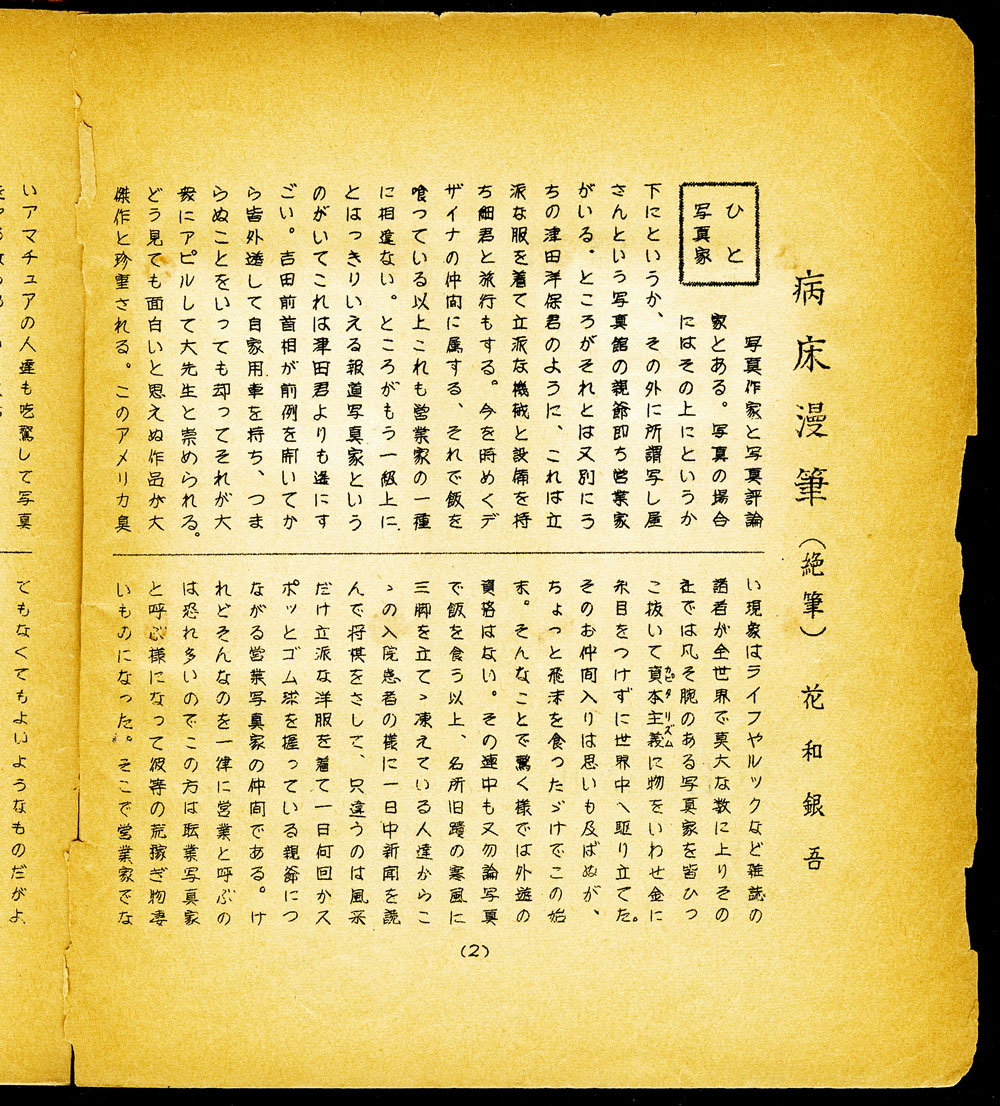 病床漫筆（絶筆）花和銀吾
ひと
写真家
写真作家と写真評論
家とある。写真の場合
にはその上にというか
下にというか、その外に所謂写し屋
さんという写真館の親爺即ち営業家
がいる。ところがそれとは又別にう
ちの津田洋保君のように、これは立
派な服を着て立派な機械と設備を持
ち細君と旅行もする。今を時めくデ
ザイナの仲间に属する、それで飯を
喰っている以上これも営業家の一種
に相違ない。ところがもう一級上に
とはっきりいえる報道写真家という
のがいてこれは津田君よりも遙にす
ごい。吉田前首相が前例を開いてか
ら皆外遊して自家用車を持ち、つま
らぬことをいっても却ってそれが大
衆にアピルして大先生と崇められる。
どう見ても面白いと思えぬ作品が大
傑作と珍重される。このアメリカ臭
い現象はライフやルックなど雑誌の
諸者が全世界で莫大な数に上りその
社では凡そ腕のある写真家を皆ひっ
こ抜いて資本主義に物をいわせ金に
カピタリズム
糸目をつけずに世界中へ駆り立てた。
そのお仲间入りは思いも及ばぬが、
ちょっと飛沫を食ったゞけでこの始
末。そんなことで驚く様では外遊の
資格はない。その連中も又勿論写真
で飯を食う以上、名所旧蹟の寒風に
三脚を立てゝ凍えている人達からこ
ゝの入院患者の様に一日中新聞を読
んで将棋をさして、只違うのは風采
だけ立派な洋服を着て一日何回かス
ポッとゴム球を握っている親爺につ
ながる営業写真家の仲间である。け
れどそんなのを一律に営業と呼ぶの
は恐れ多いのでこの方は職業写真家
と呼ぶ様になって彼等の荒稼ぎ物凄
いものになった。そこで営業家でな
(2)
いアマチュアの人達も吃驚して写真
でもなくてもよいようなものだがよ